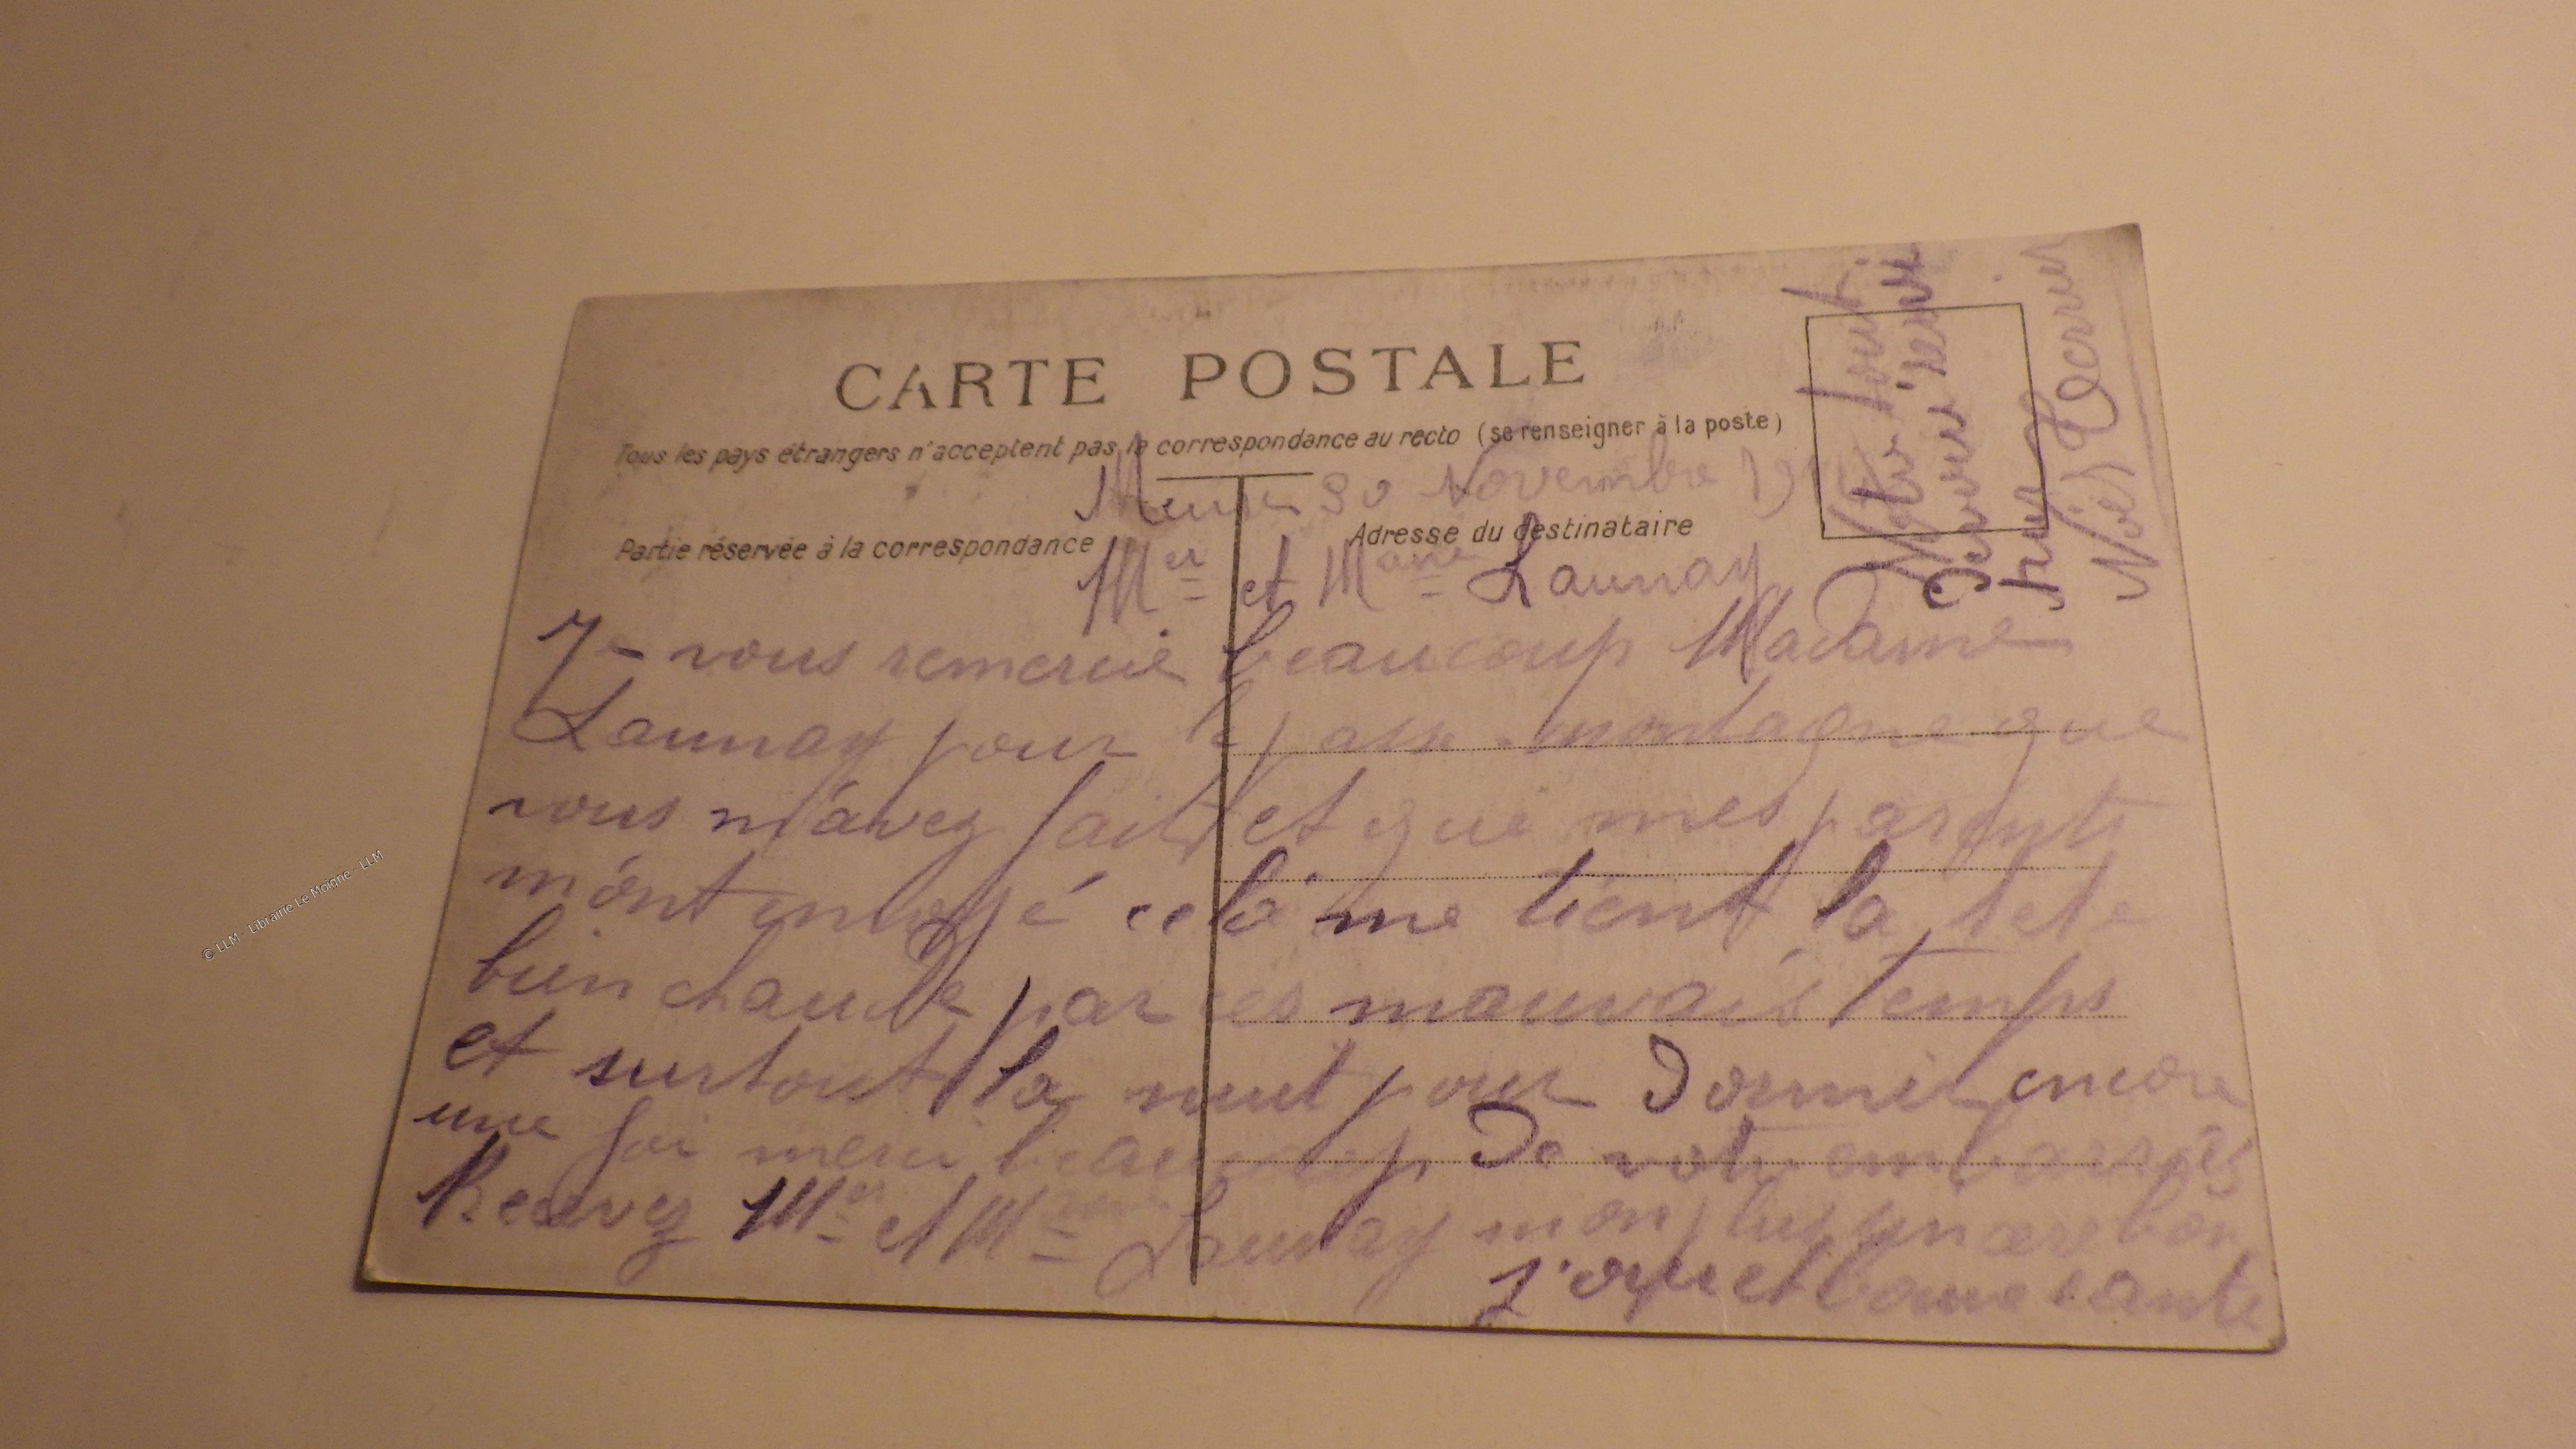 CARTE POSTALE
Tous les pays étrangers n'acceptent pas la correspondance au recto (se renseigner à la poste)
Partie réservée à la correspondance
Adresse du destinataire
30 Novembre
Mer et Mame Launay
Je vous remercie beaucoup Madame
Launay pour le passe-montagne que
vous m'avez fait et que mes parents
m'ont envoyé cela me tient la tete
bien chaude par ces mauvais temps
et surtout la nuit pour Dormir encore
une foi merci beaucoup De votre embarras
Recevez Mer et Mame Launay mon plus sincere bon
j'our et bonne sante
Votre tout
Devoué
© LLM - Librairie Le Moigne - LLM